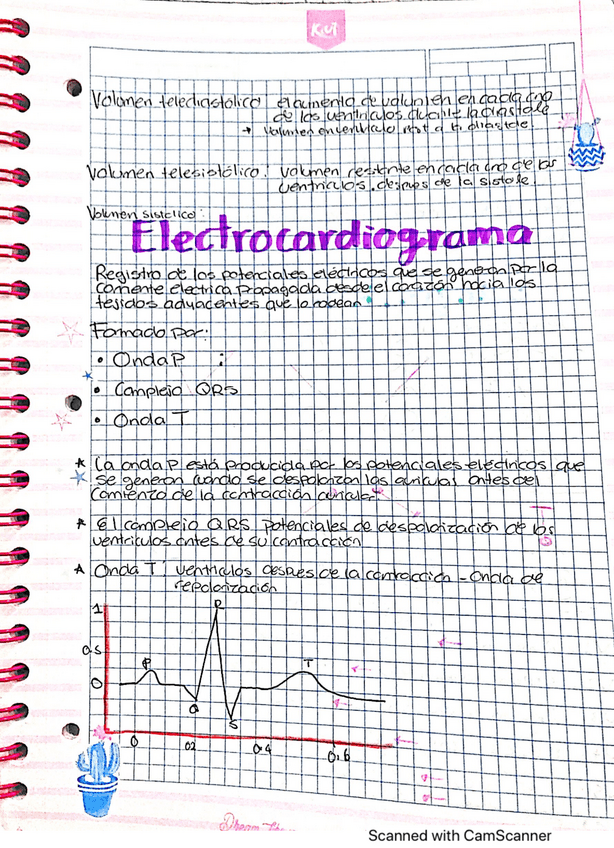 KUT
Volumen telediastolico: el aumento de volumen en cada uno
de los ventriculos durante la diastole
→ Volumen en ventriculo
Volumen telesistólico: volumen restante en cada uno de los
ventriculos despues de la sistole.
Volumen sistolico:
Electrocardiograma
Registro de los potenciales eléctricos que se generan por la
corriente electrica propagada desde el corazón hacia los
tejidos adyacentes que lo rodean
Formado por:
• Onda P :
• Complejo QRS
• Onda T
* La onda P está producida por los potenciales eléctricos que
se generan cuando se despolarizan las auriculas antes del
comienzo de la contracción auricular
* El complejo QRS potenciales de despolarización de los
ventriculos antes de su contracción
* Onda T: ventriculos despues de la contracción - Onda de
repolarización
1
R
0.5
P
T
0
Q
S
0
02
0.4
0.6
Dream
Scanned with CamScanner